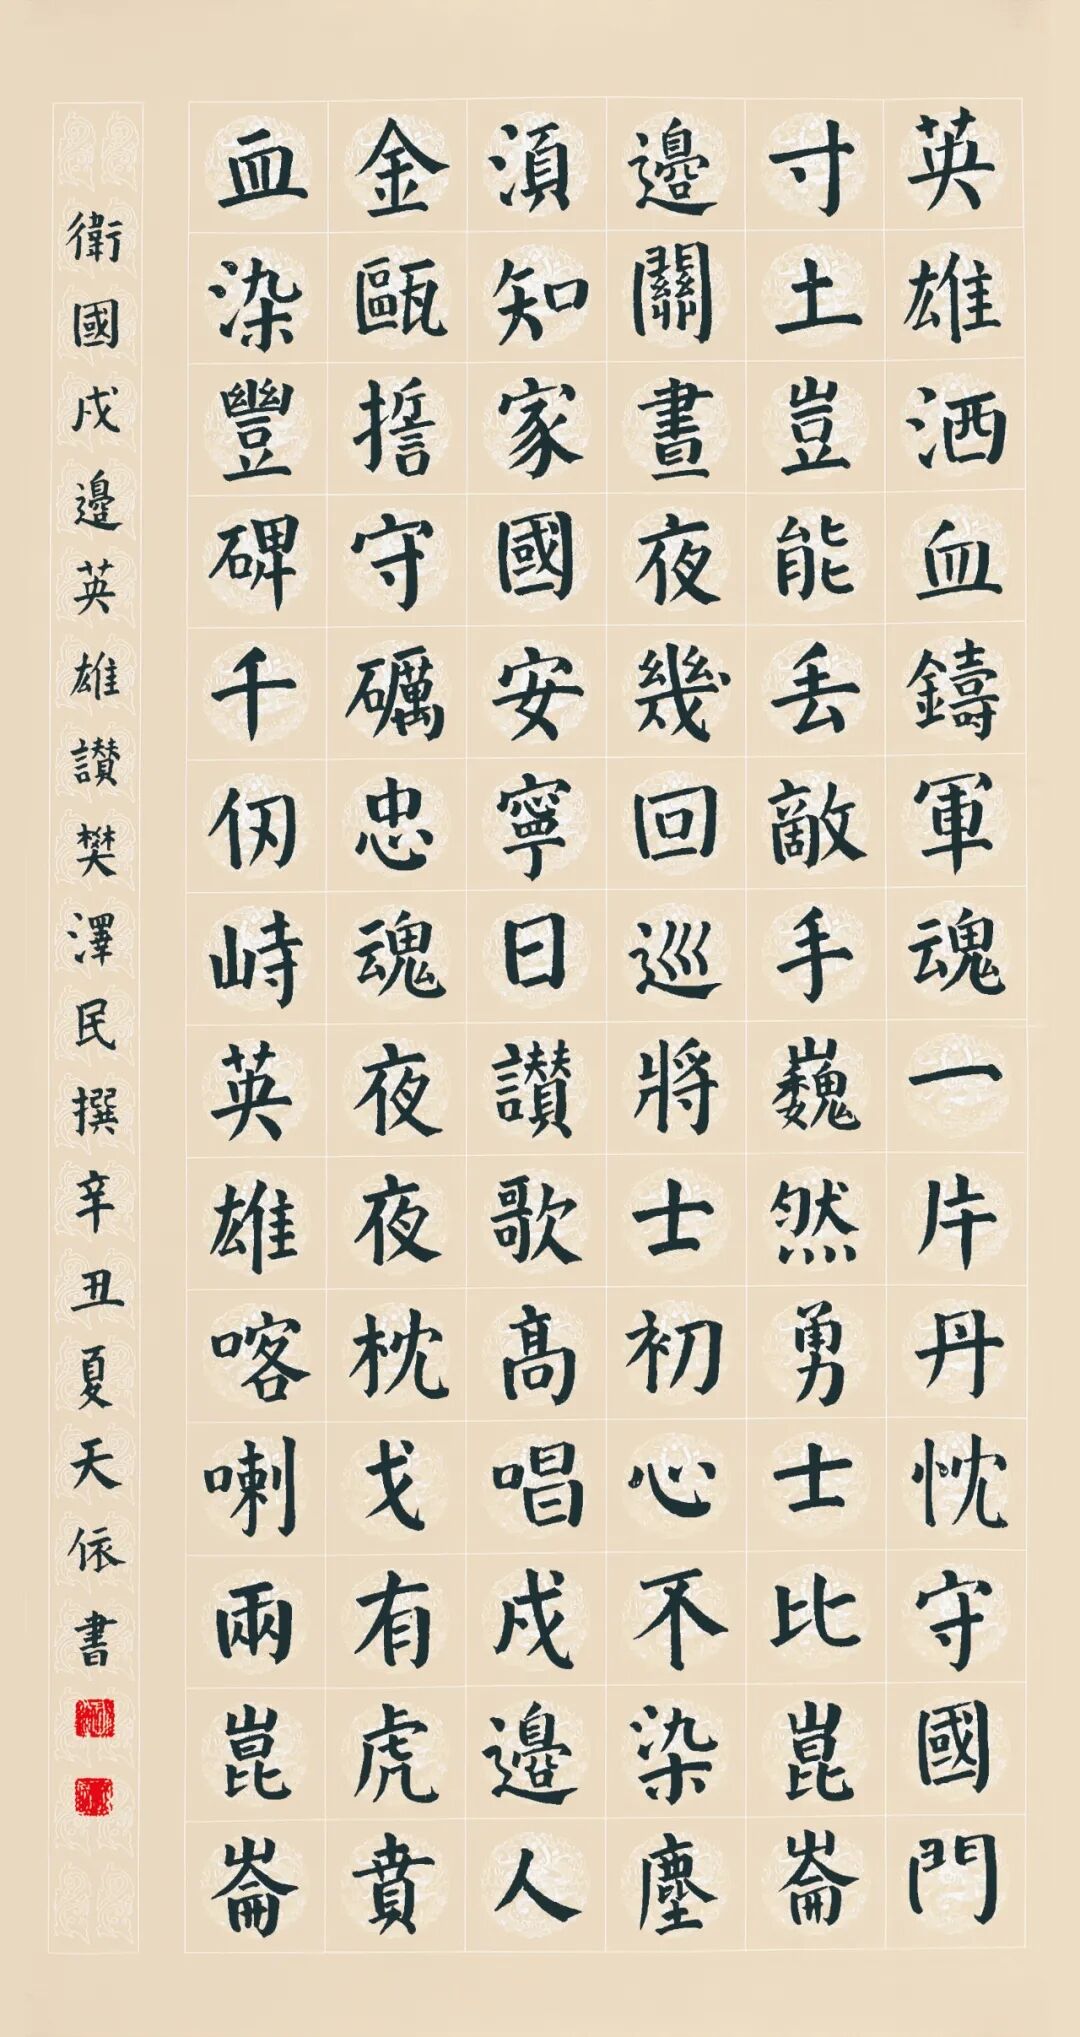 英雄洒血鑄軍魂一片丹忱守國門
寸土豈能丢敵手巍然勇士比崑崙
邊關晝夜幾回巡將士初心不染塵
須知家國安寧日讃歌高唱戍邊人
金甌擔守礪忠魂夜夜枕戈有虎賁
血染豐碑千仞峙英雄喀喇兩崑崙
衛國戍邊英雄讃樊澤民撰辛丑夏天依書